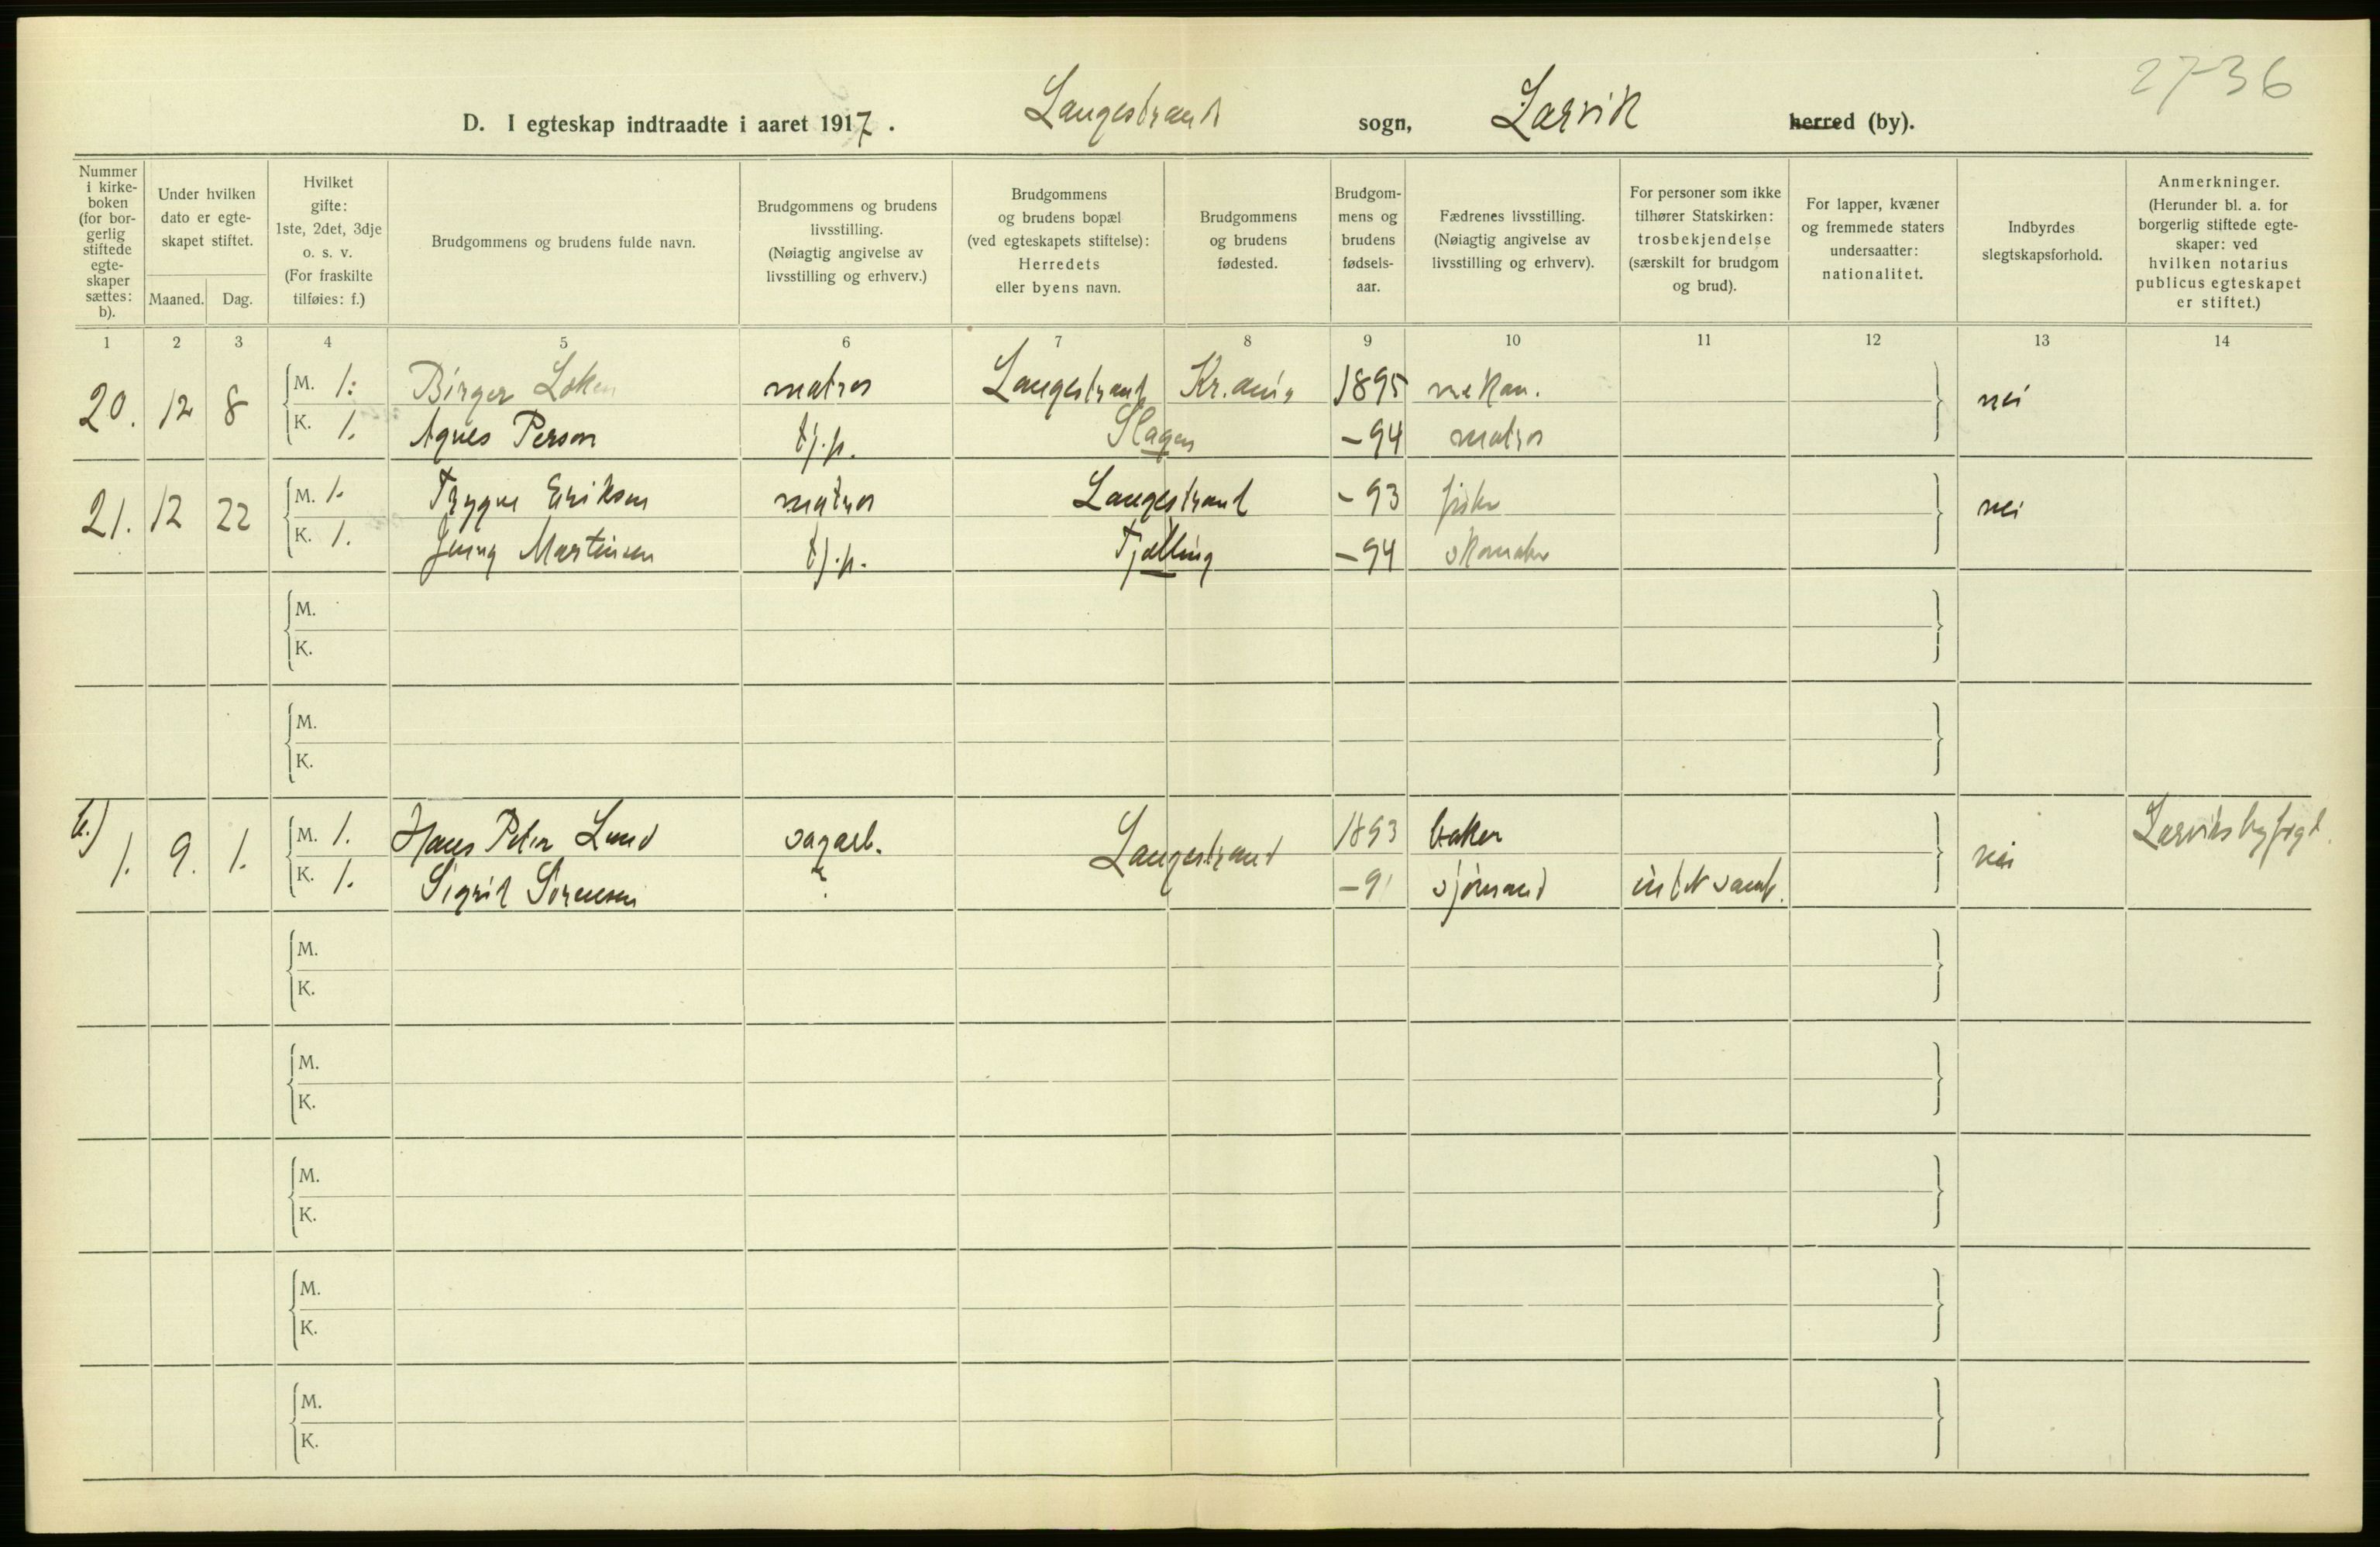 27-36
D. I egteskap indtraadte i aaret 1917. Langestrand sogn, Larvik herred (by).
Nummer i kirke-boken (for bor-gerlig stiftede egte-skaper sættes: b).
Under hvilken dato er egte-skapet stiftet.
Maaned. Dag.
Hvilket gifte: 1ste, 2det, 3dje o. s. v. (For fraskilte tilføies: f.)
Brudgommens og brudens fulde navn.
Brudgommens og brudens livsstilling. (Nøiagtig angivelse av livsstilling og erhverv.)
Brudgommens og brudens bopæl (ved egteskapets stiftelse): Herredets eller byens navn.
Brudgommens og brudens fødested.
Brudgom-mens og brudens fødsels-aar.
Fædrenes livsstilling. (Nøiagtig angivelse av livsstilling og erhverv).
For personer som ikke tilhører Statskirken: trosbekjendelse (særskilt for brudgom og brud).
For lapper, kvæner og fremmede staters undersaatter: nationalitet.
Indbyrdes slegtskapsforhold.
Anmerkninger. (Herunder bl. a. for borgerlig stiftede egte-skaper: ved hvilken notarius publicus egteskapet er stiftet.)
1 2 3 4 5 6 7 8 9 10 11 12 13 14
20. 12 8 M. 1. Birger Løken matros Langestrand Kr.ania 1895 mekan. nei
K. 1. Agnes Person tj.p. Slagen -94 matros
21. 12 22 M. 1. Trygve Eriksen matros Langestrand -93 fisker nei
K. 1. Jenny Martinsen tj.p. Tjølling -94 skomaker
M.
K.
M.
K.
b.) 1. 9. 1. M. 1. Hans Peter Lund sagarb. Langestrand 1893 baker nei Larviks byfogd.
K. 1. Sigrid Sørensen ? -91 sjømand intet samf.
M.
K.
M.
K.
M.
K.
M.
K.
M.
K.